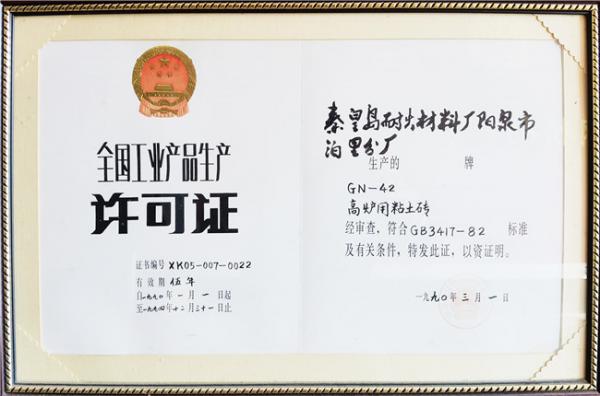 全国工业产品生产
许可证
证书编号 XK05-007-0022
有效期 伍年
自一九九〇年一月一日起
至一九九四年十二月三十一日止
秦皇岛耐火材料厂阳泉市
泊里分厂
生产的 牌
GN-42
高炉用粘土砖
经审查，符合GB3417-82 标准
及有关条件，特发此证，以资证明。
一九九〇年三月一日